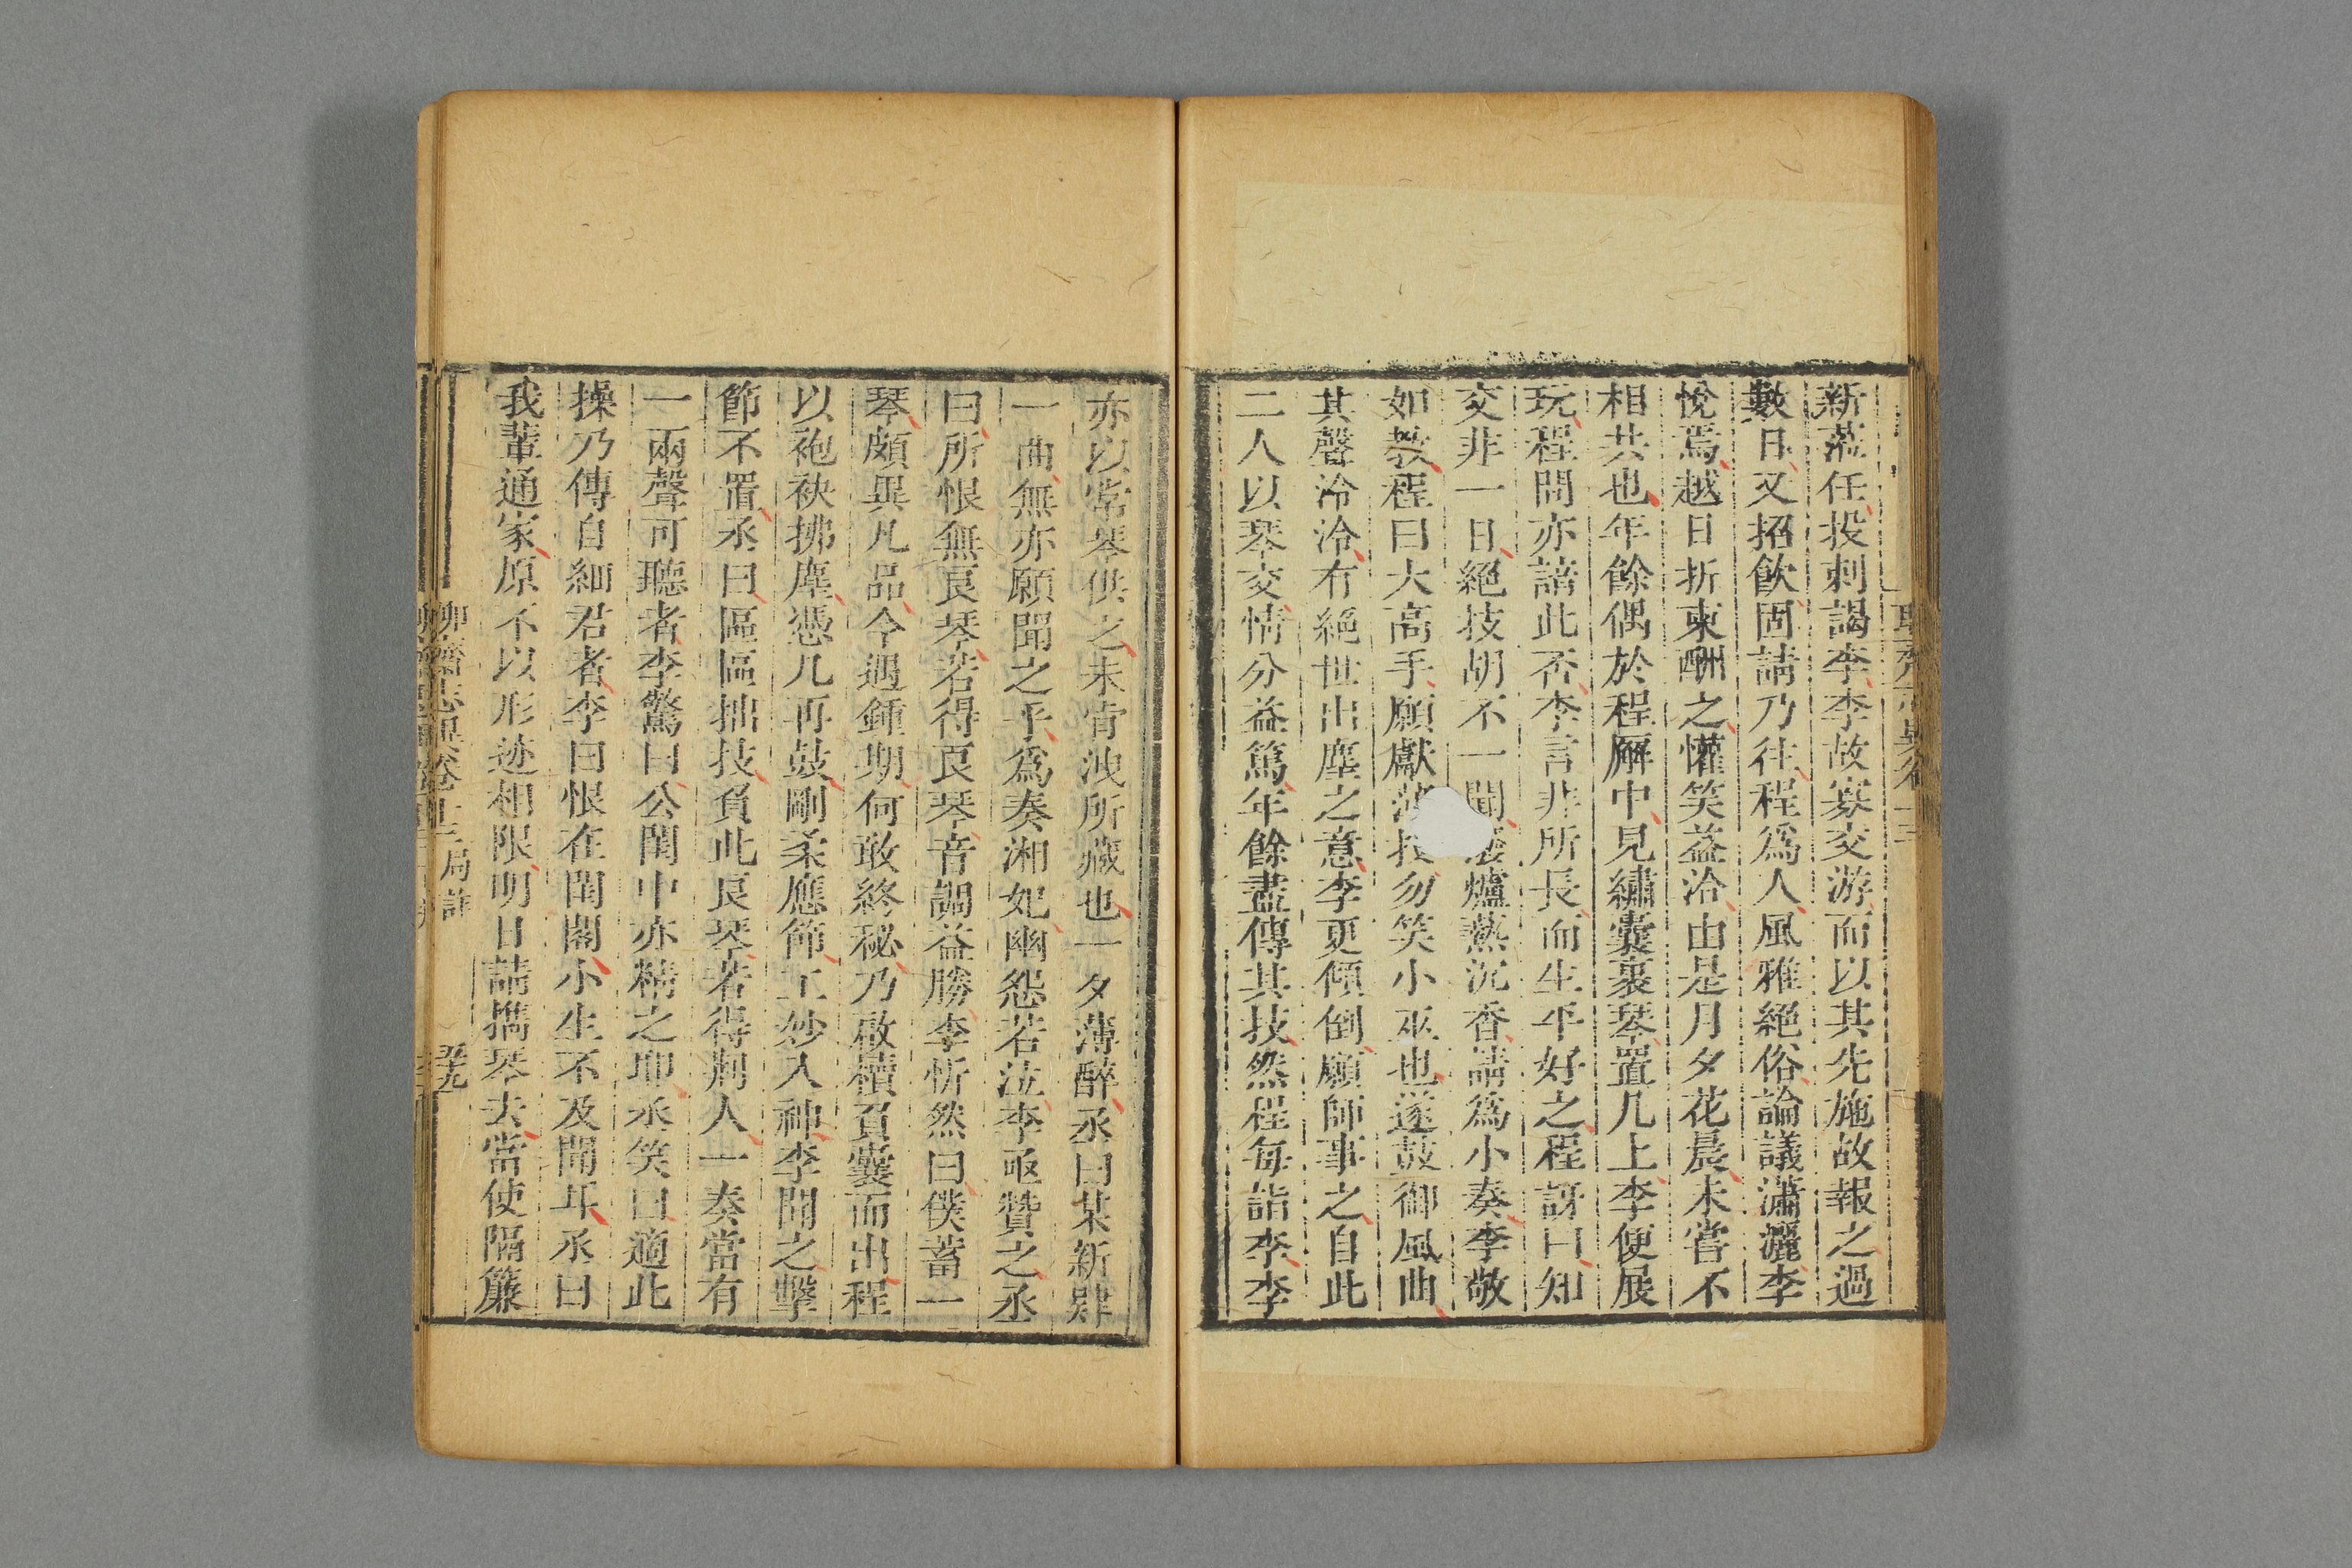 新蒞任投刺謁李李故寡交游而以其先施故報之過
數日又招飲固請乃往程爲人風雅絕俗論議瀟灑李
悅焉越日折柬酬之懽笑益洽由是月夕花晨未嘗不
相共也年餘偶於程廨中見繡囊裹琴置几上李便展
玩程問亦諳此否李言非所長而生平好之程訝曰知
交非一日絕技胡不一聞撥爐爇沉香請爲小奏李敬
如教程曰大高手願獻薄技勿笑小巫也遂鼓御風曲
其聲泠泠有絕世出塵之意李更傾倒願師事之自此
二人以琴交情分益篤年餘盡傳其技然程每詣李李
亦以常琴供之未肯洩所藏也一夕薄醉丞曰某新肄
一曲無亦願聞之乎爲奏湘妃幽怨若泣李亟贊之丞
曰所恨無良琴若得良琴音調益勝李忻然曰僕蓄一
琴頗異凡品今遇鍾期何敢終秘乃啟櫝負囊而出程
以袍袂拂塵憑几再鼓剛柔應節工妙入神李聞之擊
節不置丞曰區區拙技負此良琴若得荊人一奏當有
一兩聲可聽者李驚曰公閨中亦精之耶丞笑曰適此
操乃傳自細君者李曰恨在閨閣小生不及聞耳丞曰
我輩通家原不以形迹相限明日請攜琴去當使隔簾
聊齋志異卷十三 局詐 五九